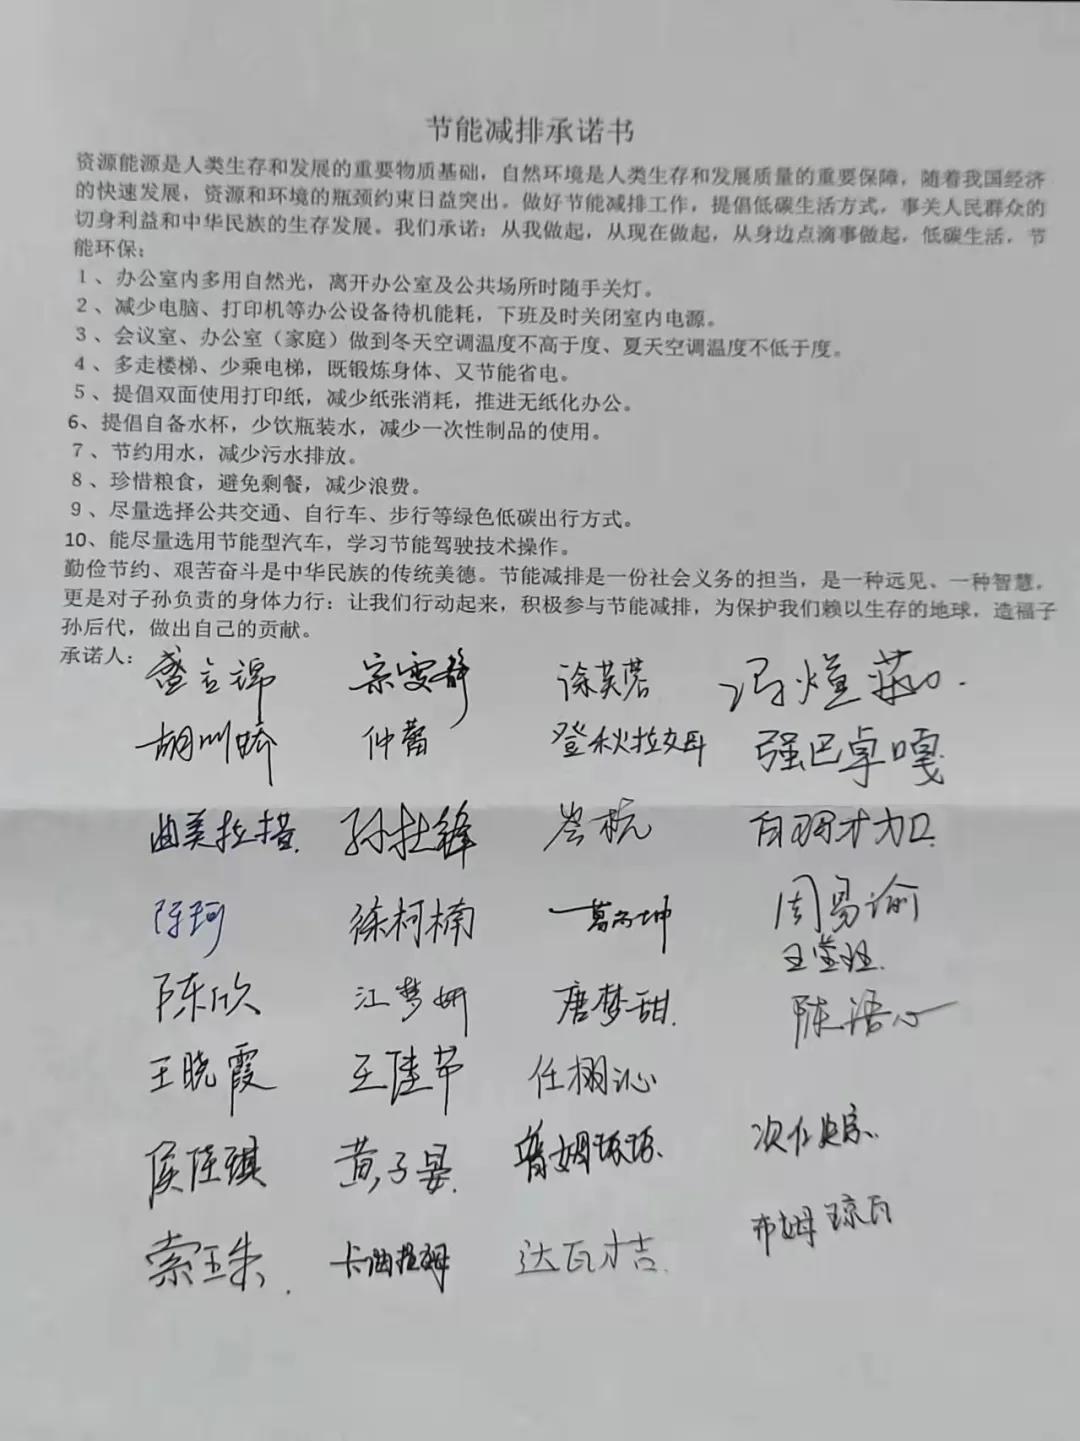 节能减排承诺书
资源能源是人类生存和发展的重要物质基础，自然环境是人类生存和发展质量的重要保障，随着我国经济
的快速发展，资源和环境的瓶颈约束日益突出。做好节能减排工作，提倡低碳生活方式，事关人民群众的
切身利益和中华民族的生存发展。我们承诺：从我做起，从现在做起，从身边点滴事做起，低碳生活，节
能环保：
1、办公室内多用自然光，离开办公室及公共场所时随手关灯。
2、减少电脑、打印机等办公设备待机能耗，下班及时关闭室内电源。
3、会议室、办公室（家庭）做到冬天空调温度不高于度、夏天空调温度不低于度。
4、多走楼梯、少乘电梯，既锻炼身体、又节能省电。
5、提倡双面使用打印纸，减少纸张消耗，推进无纸化办公。
6、提倡自备水杯，少饮瓶装水，减少一次性制品的使用。
7、节约用水，减少污水排放。
8、珍惜粮食，避免剩餐，减少浪费。
9、尽量选择公共交通、自行车、步行等绿色低碳出行方式。
10、能尽量选用节能型汽车，学习节能驾驶技术操作。
勤俭节约、艰苦奋斗是中华民族的传统美德。节能减排是一份社会义务的担当，是一种远见、一种智慧，
更是对子孙负责的身体力行：让我们行动起来，积极参与节能减排，为保护我们赖以生存的地球，造福子
孙后代，做出自己的贡献。
承诺人：盛立锦 宗雯静 徐芙蓉
仲蕾 登秋拉姆 强巴卓嘎
曲美拉措 孙杜锋 岑杭 白玛才加
陈珂 徐柯楠 周易谕
陈欣 江梦妍 唐梦甜 陈语心
王晓霞 王佳节 任栩沁
侯佳琪 黄子晏
索玉朱 达瓦才吉 布姆琼瓦